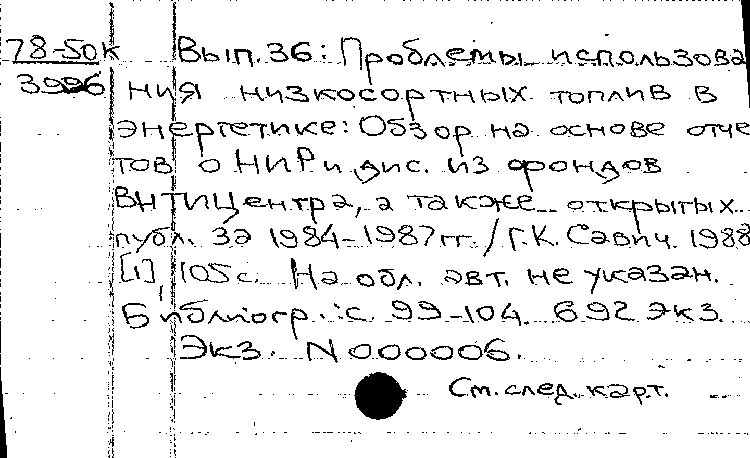 78-50к Вып.36: Проблемы использова
3996 ния низкосортных топлив в
энергетике: Обзор на основе отче
тов о НИР и дис. из фондов
ВНТИЦентра, а также открытых
публ. за 1984-1987 гг. / Г.К. Савич. 1988
[1], 105 с. На обл. авт. не указан.
Библиогр.: с. 99-104. 692 экз.
Экз. N 000006.
См. след. карт.